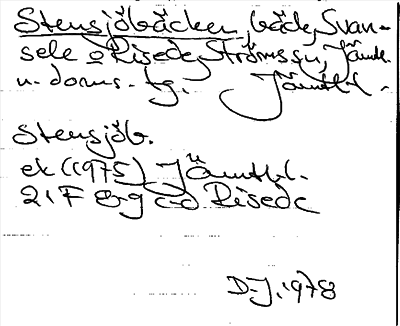 Stensjöbäcken, bäck, Svan-
sele o Risede, Ströms sn, Jämtl.
n. doms. fg. Jämtl. l.
Stensjöb.
ek (1975) Jämtl. l.
21F 8-g c-d Risede
D-J. 1978